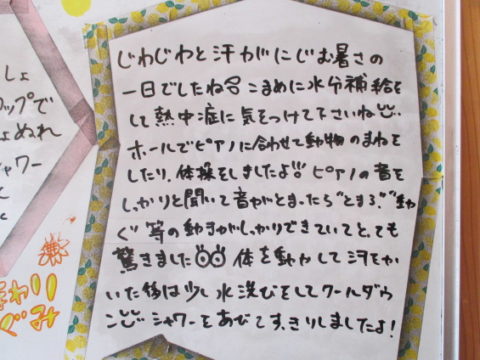 じわじわと汗がにじむ暑さの
一日でしたね こまめに水分補給を
して熱中症に気をつけて下さいね
ホールでピアノに合わせて動物のまねを
したり、体操をしましたよ!! ピアノの音を
しっかりと聞いて音がとまったら"とまる"、"動
く"等の動きがしっかりできていてとても
驚きました 体を動かして汗をか
いた後は少し水浴びをしてクールダウ
ン シャワーをあびてすっきりしましたよ!
しょ
ップで
ょぬれ
シャワー
まわり
ぐみ